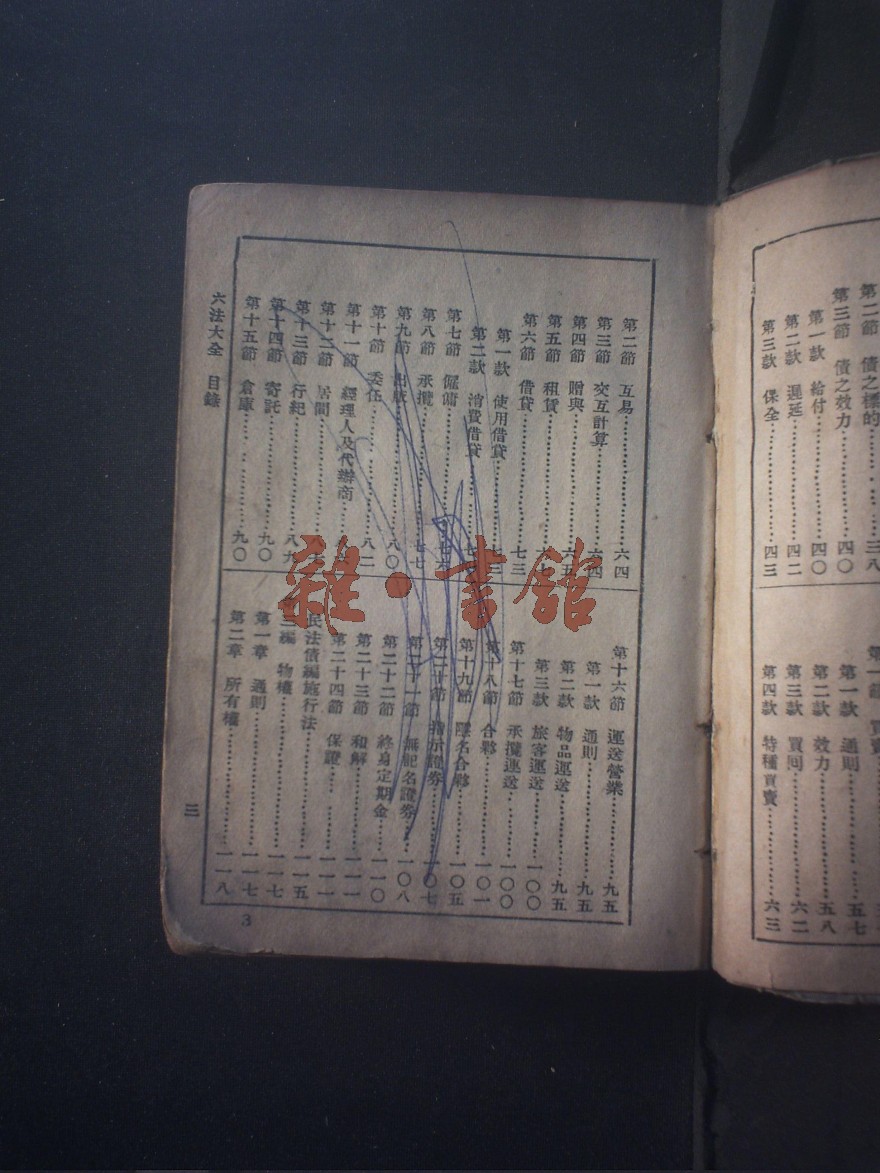 第二節 債之標的 三八
第三節 債之效力 四〇
第一款 給付 四〇
第二款 遲延 四二
第三款 保全 四三
第一款 通則 五七
第二款 效力 五八
第三款 買回 六二
第四款 特種買賣 六三
第二節 互易 六四
第三節 交互計算 六四
第四節 贈與 六五
第五節 租賃
第六節 借貸 七三
第一款 使用借貸
第二款 消費借貸
第七節 僱傭 七六
第八節 承攬 七七
第九節 出版 八〇
第十節 委任 八二
第十一節 經理人及代辦商
第十二節 居間
第十三節 行紀 八九
第十四節 寄託 九〇
第十五節 倉庫 九〇
第十六節 運送營業 九五
第一款 通則 九五
第二款 物品運送 九五
第三款 旅客運送 一〇〇
第十七節 承攬運送 一〇〇
第十八節 合夥 一〇一
第十九節 隱名合夥 一〇五
第二十節 指示證券 一〇七
第二十一節 無記名證券 一〇八
第二十二節 終身定期金 一一〇
第二十三節 和解 一一一
第二十四節 保證 一一一
民法債編施行法 一一五
編 物權 一一七
第一章 通則 一一七
第二章 所有權 一一八
六法大全 目錄
三
3
雜·書館